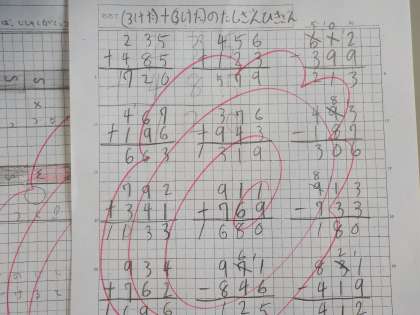 (3けた)+(3けた)のたしざんひきざん
235 456 612
+485 +123 -399
720 579 213
467 376 493
+196 +943 -187
663 1319 306
792 911 913
+341 +769 -733
1133 1680 180
934 971 831
+762 -846 -419
1696 125 412